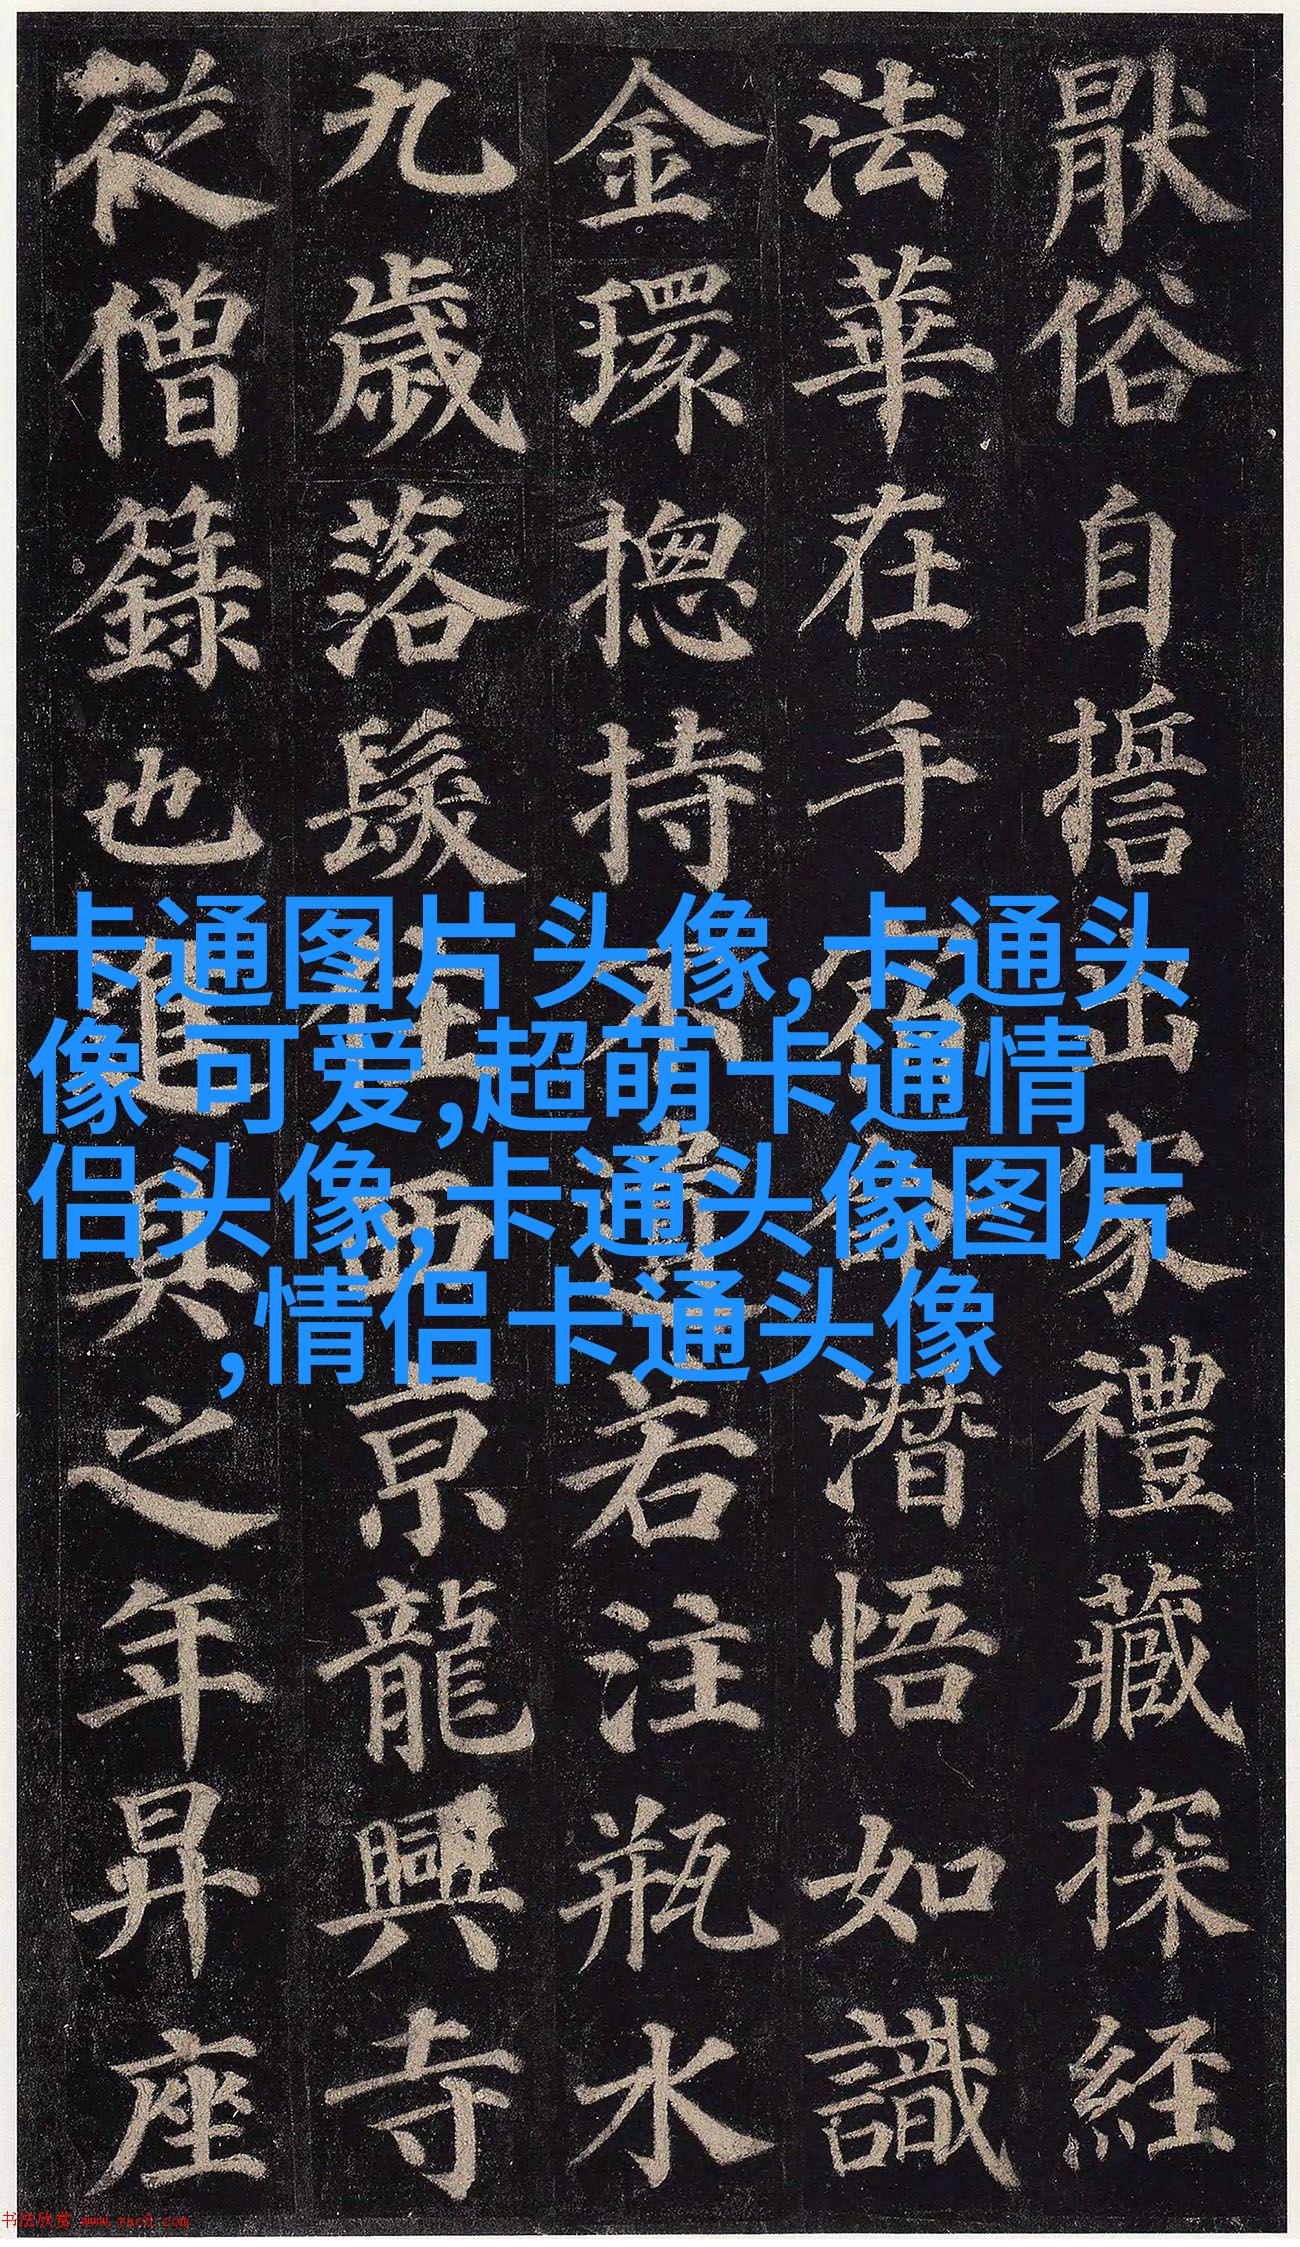 猒俗自誓出家禮藏探經
法華在手宿命潛悟如識
金環揔持不遺若注瓶水
九歲落髮住西京龍興寺
從僧籙也進具之年昇座
卡通图片头像,卡通头
像 可爱,超萌卡通情
侣头像,卡通头像图片
,情侣卡通头像
书法欣赏 www.yac8.com